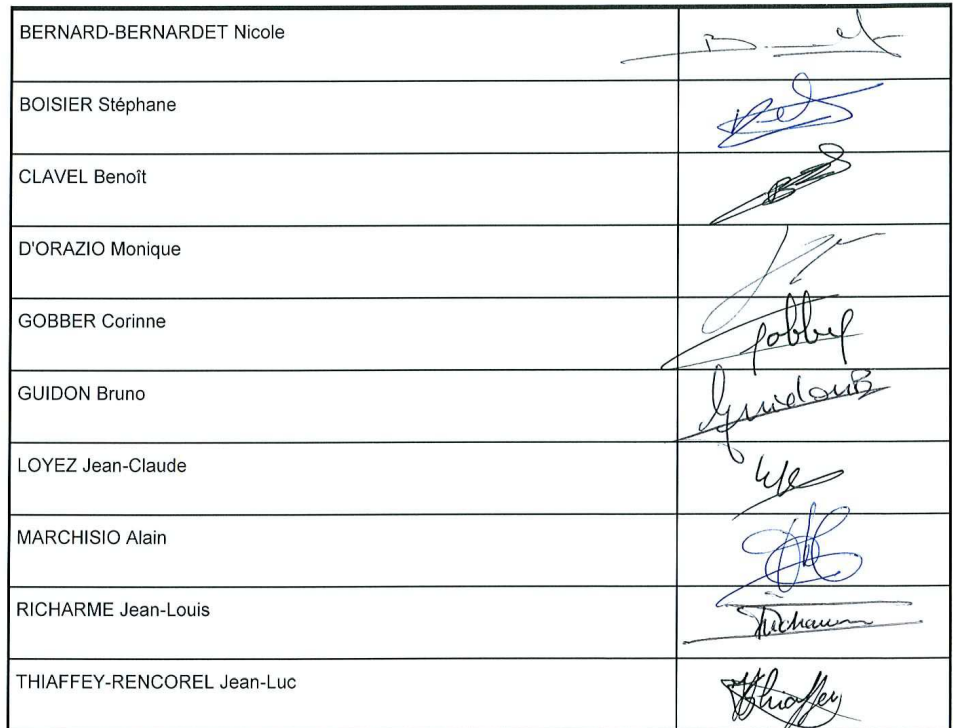 BERNARD-BERNARDET Nicole
BOISIER Stéphane
CLAVEL Benoît
D'ORAZIO Monique
GOBBER Corinne
Gobber
GUIDON Bruno
Guidon B
LOYEZ Jean-Claude
MARCHISIO Alain
RICHARME Jean-Louis
THIAFFEY-RENCOREL Jean-Luc
Thiaffey